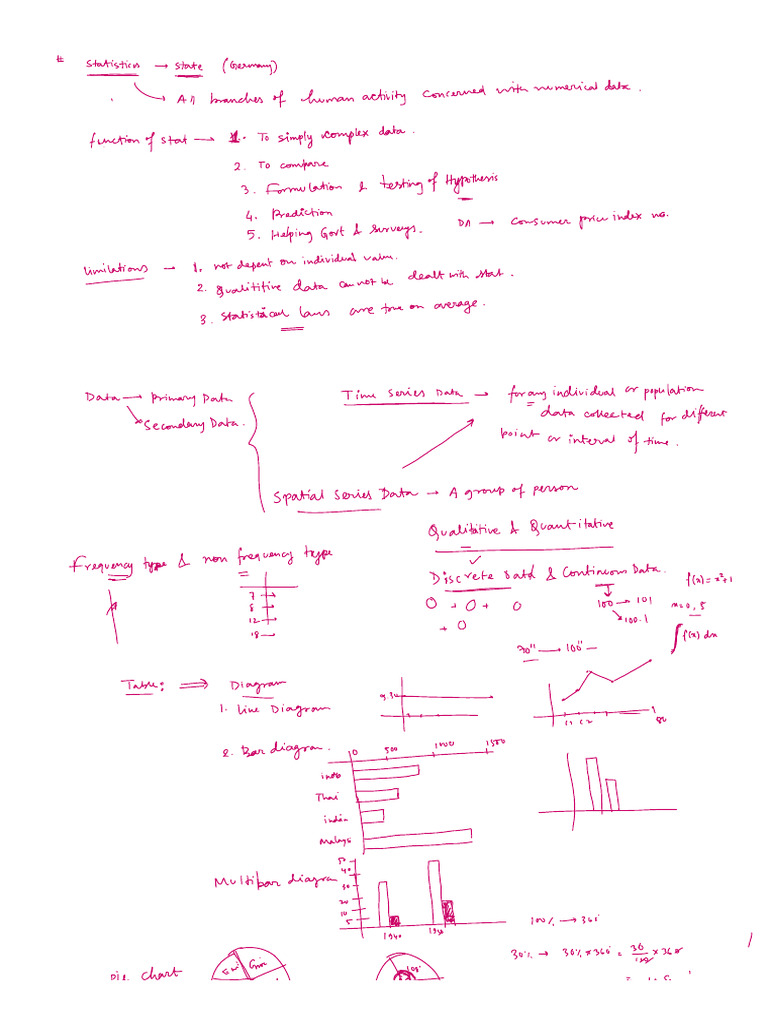 # Statistics → State (Germany)
→ All branches of human activity concerned with numerical data.
function of stat → 1. To simply complex data.
2. To compare
3. Formulation & testing of Hypothesis
4. Prediction
5. Helping Govt & surveys.
DA → Consumer price index no.
Limilations → 1. not depent on individual value.
2. Qualititive data cannot be dealt with stat.
3. Statistical laws are true on average.
Data → Primary Data
→ Secondary Data.
Time Series Data → for any individual or population
data collected for different
point or interval of time.
Spatial Series Data → A group of person
Qualitative & Quantitative
Frequency type & non frequency type
7
8
12
18
Discrete data & Continuous Data.
0 + 0 + 0
+ 0
100 → 101
→ 100.1
f(x) = x²+1
x = 0, 5
∫ f(x) dx
70" → 100"
Table: ⇒ Diagram
1. Line Diagram
9.30
80
2. Bar diagram.
0 500 1000 1500
indo
Thai
india
Malays
Multibar diagram
50
40
30
20
10
5
1940
100% → 360
30% → 30% × 360 = 30/100 × 360
Pie chart